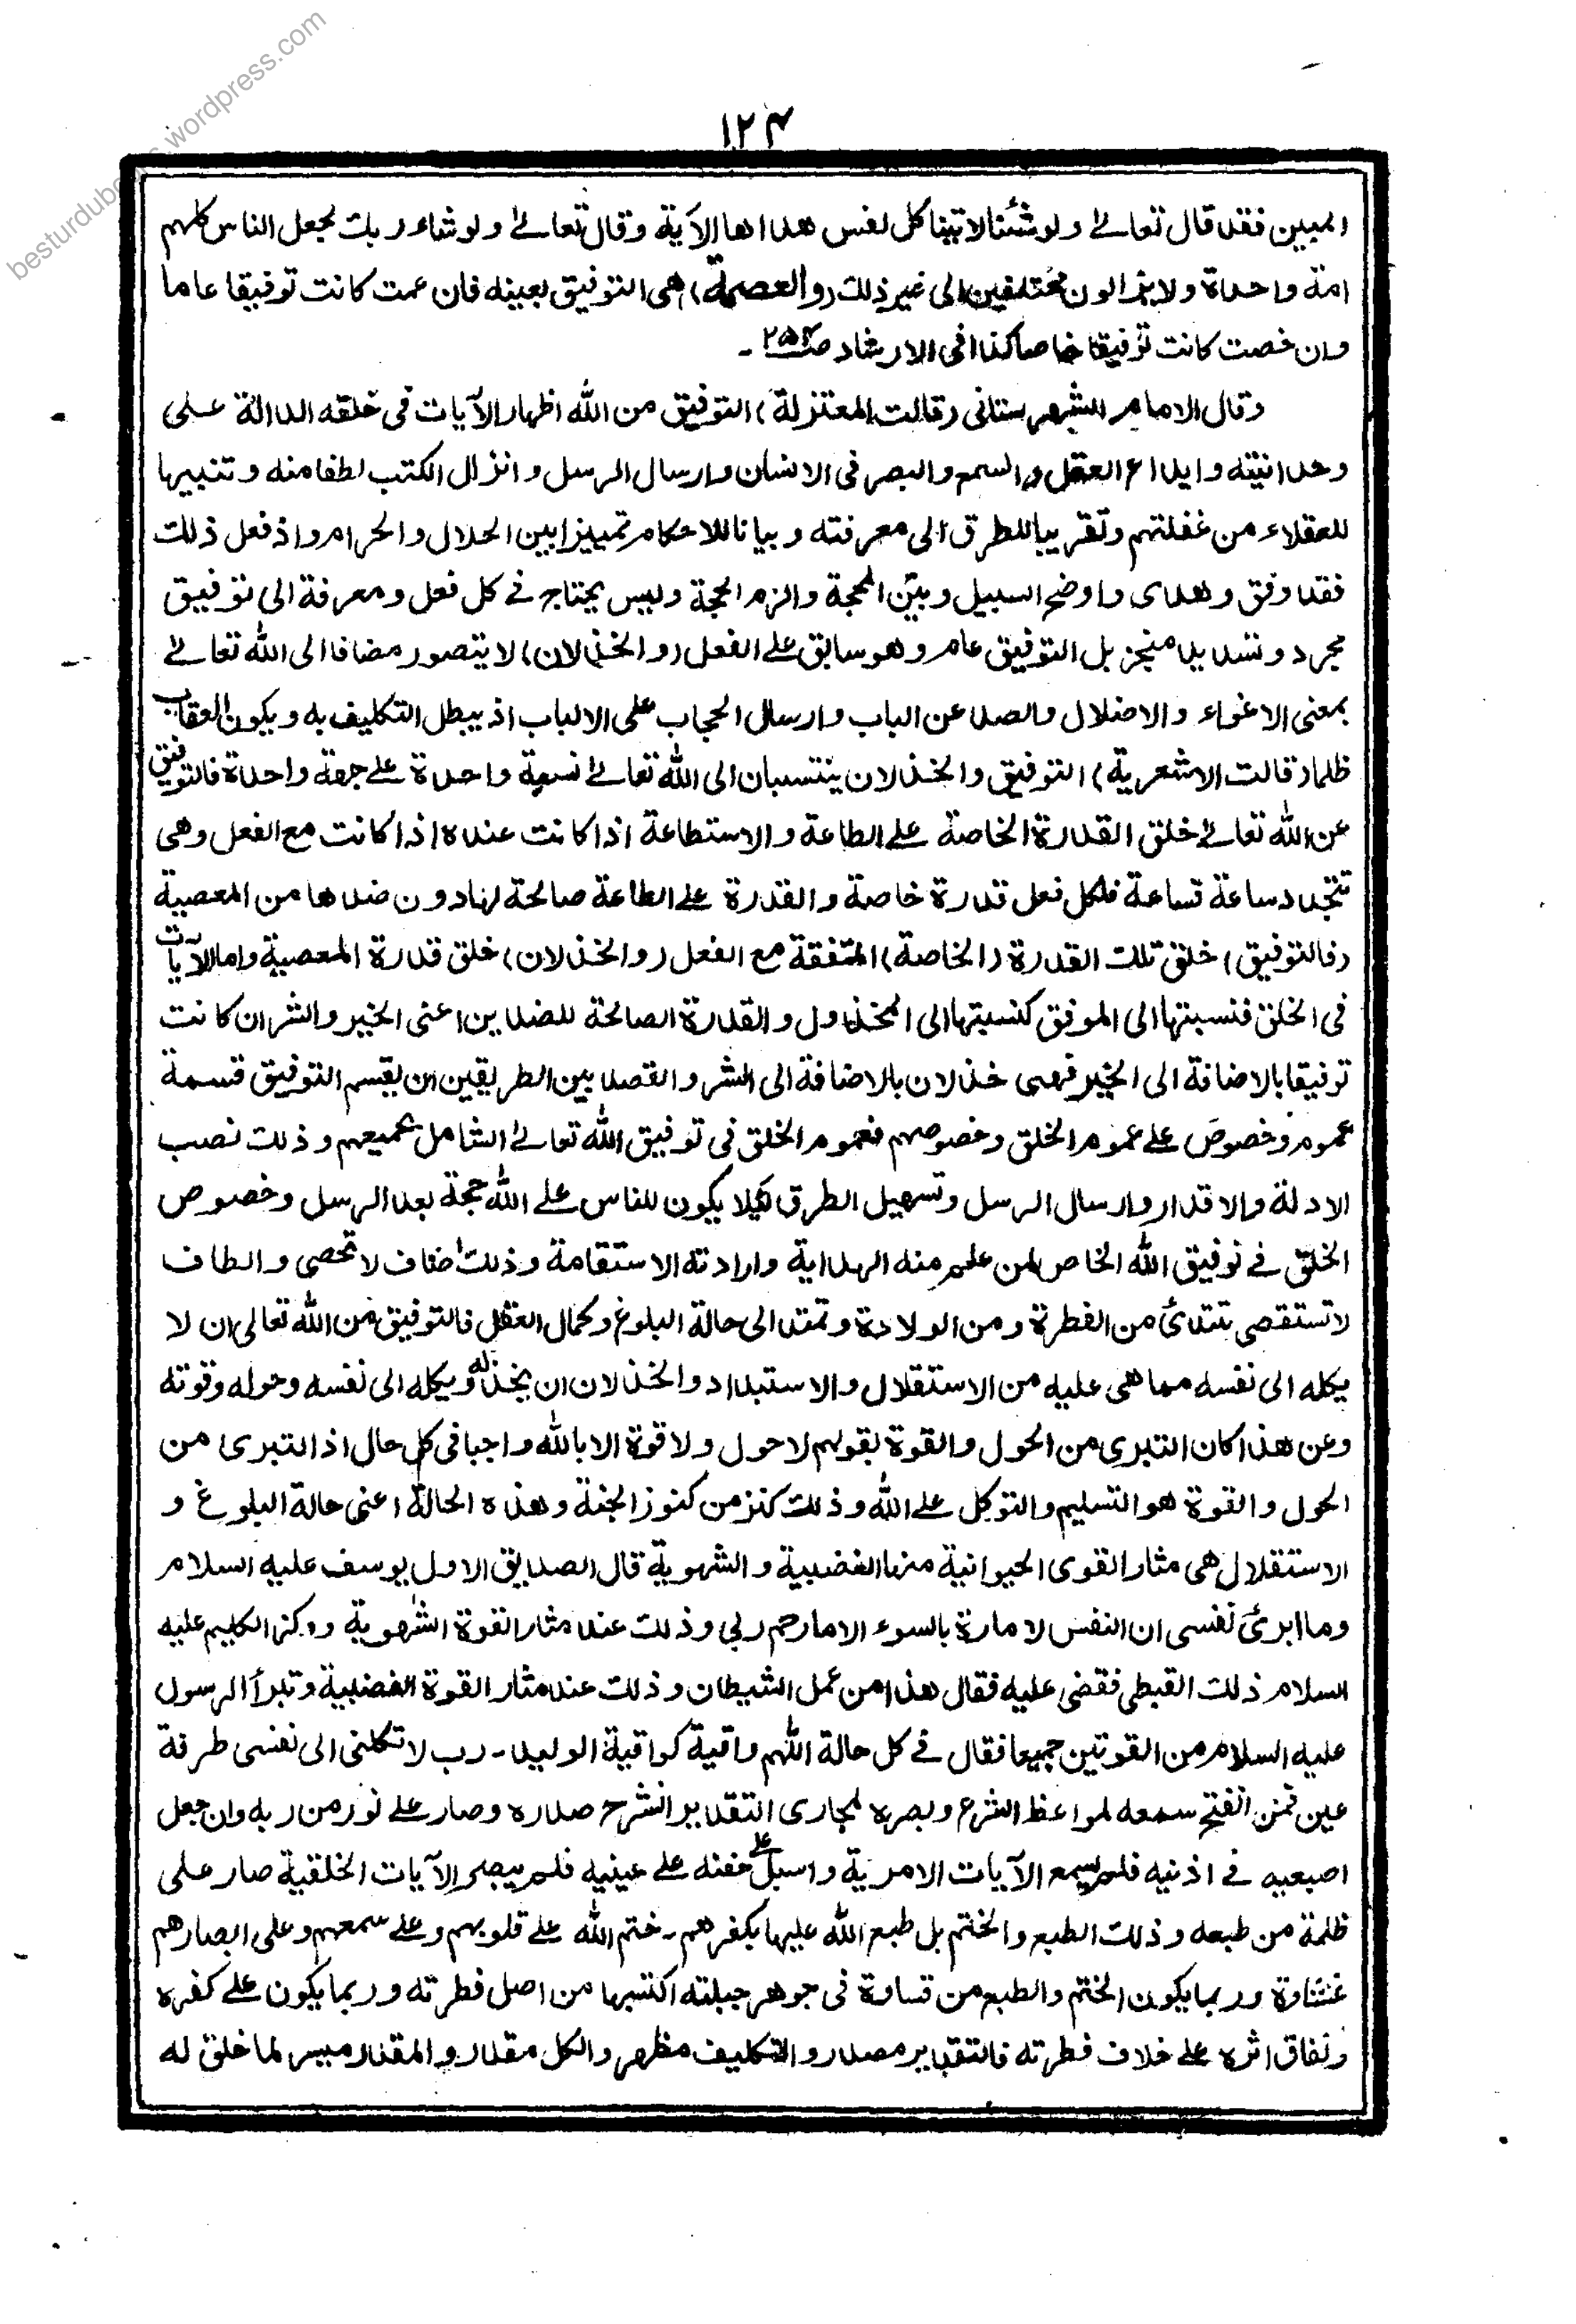 besturdubooks.wordpress.com
١٢٤
المبين فقد قال تعالے ولو شئنا لاتينا كل نفس هداها الآية وقال تعالے ولو شاء ربك لجعل الناس كلهم
امة واحدة ولا يزالون مختلفين الى غير ذلك (والعصمة) هى التوفيق بعينه فان عمت كانت توفيقا عاما
وان خصت كانت توفيقا خاصا كذا فى الارشاد ص٢٥٤ ـ
وقال الامام الشهرستانى (قالت المعتزلة) التوفيق من الله اظهار الآيات فى خلقه الدالة على
وحدانيته وابداع العقل والسمع والبصر فى الانسان وارسال الرسل وانزال الكتب لطفا منه وتنبيها
للعقلاء من غفلتهم وتقريبا للطرق الى معرفته وبيانا للاحكام تمييزا بين الحلال والحرام واذ فعل ذلك
فقد وفق وهدى واوضح السبيل وبيّن المحجة والزم الحجة وليس يحتاج فے كل فعل ومعرفة الى توفيق
مجرد وتسديد منجز بل التوفيق عام وهو سابق علے الفعل (والخذلان) لا يتصور مضافا الى الله تعالے
بمعنى الاغواء والاضلال والصد عن الباب وارسال الحجاب على الالباب اذ يبطل التكليف به ويكون العقاب
ظلما (قالت الاشعرية) التوفيق والخذلان ينتسبان الى الله تعالے نسبة واحدة علے جهة واحدة فالتوفيق
عن الله تعالے خلق القدرة الخاصة علے الطاعة والاستطاعة اذا كانت عنده اذا كانت مع الفعل وهى
تتجدد ساعة فساعة فلكل فعل قدرة خاصة والقدرة علے الطاعة صالحة لها دون ضدها من المعصية
(فالتوفيق) خلق تلك القدرة (الخاصة) المتفقة مع الفعل (والخذلان) خلق قدرة المعصية واما الآيات
فى الخلق فنسبتها الى الموفق كنسبتها الى المخذول والقدرة الصالحة للضدين اعنى الخير والشر ان كانت
توفيقا بالاضافة الى الخير فهى خذلان بالاضافة الى الشر والقصد بين الطريقين ان يقسم التوفيق قسمة
عموم وخصوص علے عموم الخلق وخصوصهم فعموم الخلق فى توفيق الله تعالے الشامل لجميعهم وذلك نصب
الادلة والاقدار وارسال الرسل وتسهيل الطرق لكيلا يكون للناس علے الله حجة بعد الرسل وخصوص
الخلق فے توفيق الله الخاص لمن علم منه الهداية وارادته الاستقامة وذلك اضاف لا تحصى والطاف
لا تستقصى تبتدئ من الفطرة ومن الولادة وتمتد الى حالة البلوغ وكمال العقل فالتوفيق من الله تعالى ان لا
يكله الى نفسه مما هى عليه من الاستقلال والاستبداد والخذلان ان يخذله ويكله الى نفسه وحوله وقوته
وعن هذا كان التبرى من الحول والقوة بقولهم لا حول ولا قوة الا بالله واجبا فى كل حال اذ التبرى من
الحول والقوة هو التسليم والتوكل علے الله وذلك كنز من كنوز الجنة وهذه الحالة اعنى حالة البلوغ و
الاستقلال هى مثار القوى الحيوانية منها الغضبية والشهوية قال الصديق الاول يوسف عليه السلام
وما ابرئ نفسى ان النفس لامارة بالسوء الا ما رحم ربى وذلك عند مثار القوة الشهوية ووكز الكليم عليه
السلام ذلك القبطى فقضى عليه فقال هذا من عمل الشيطان وذلك عند مثار القوة الغضبية وتبرأ الرسول
عليه السلام من القوتين جميعا فقال فے كل حالة اللهم واقية كواقية الوليد ـ رب لا تكلنى الى نفسى طرفة
عين فمن انفتح سمعه لمواعظ الشرع وبصره لمجارى التقدير انشرح صدره وصار علے نور من ربه وان جعل
اصبعيه فے اذنيه فلم يسمع الآيات الامرية واسبل علے جفنه علے عينيه فلم يبصر الآيات الخلقية صار على
ظلمة من طبعه وذلك الطبع والختم بل طبع الله عليها بكفرهم ـ ختم الله علے قلوبهم وعلے سمعهم وعلى ابصارهم
غشاوة وربما يكون الختم والطبع من قساوة فى جوهر جبلته اكتسبها من اصل فطرته وربما يكون علے كفره
ونفاق اثره علے خلاف فطرته فالتقدير مصدر والتكليف مظهر والكل مقدر والمقدر ميسر لما خلق له